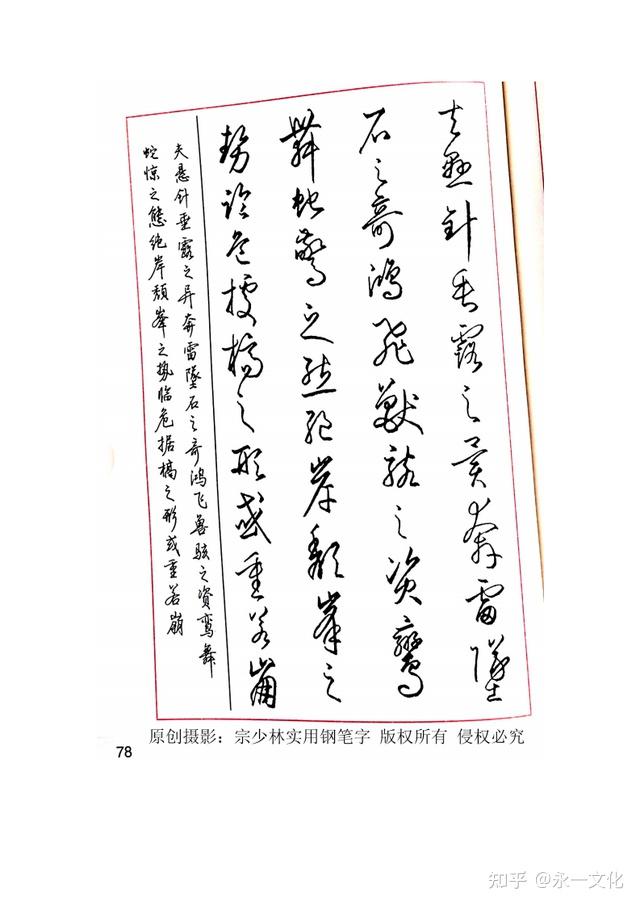 夫懸針垂露之異奔雷墜
石之奇鴻飛獸駭之資鸞
舞蛇驚之態絕岸頹峯之
勢臨危據槁之形或重若崩
夫悬针垂露之异奔雷墜石之奇鸿飞兽骇之資鸾舞
蛇惊之態绝岸颓峯之势临危据槁之形或重若崩
原创摄影：宗少林实用钢笔字 版权所有 侵权必究
78
知乎 @永一文化